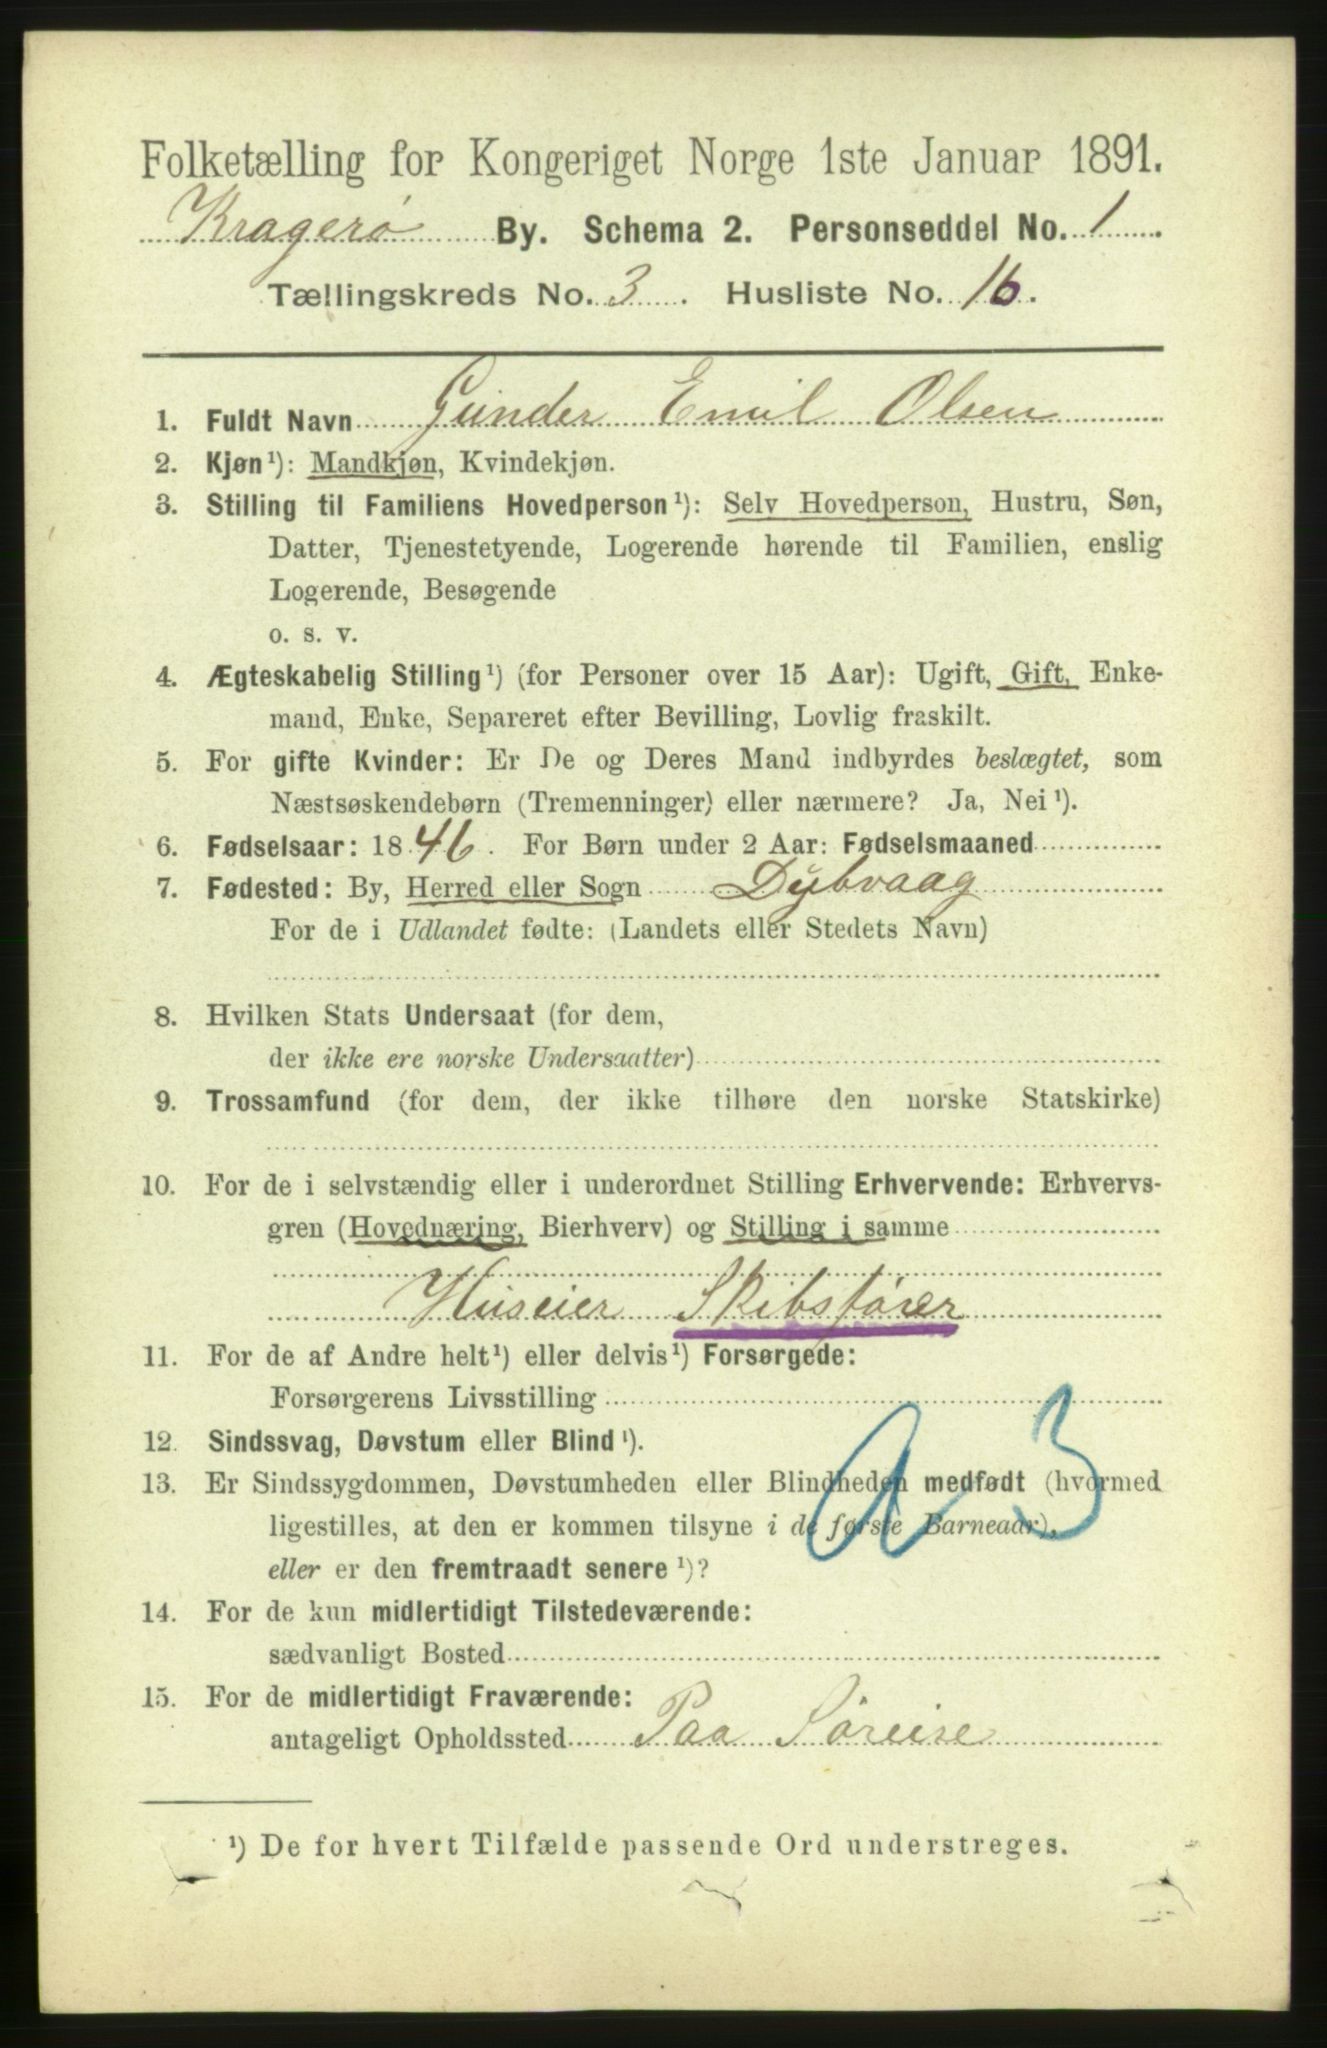 Folketælling for Kongeriget Norge 1ste Januar 1891.
Kragerø By. Schema 2. Personseddel No. 1.
Tællingskreds No. 3. Husliste No. 16.
1. Fuldt Navn Gunder Emil Olsen
2. Kjøn¹): Mandkjøn, Kvindekjøn.
3. Stilling til Familiens Hovedperson¹): Selv Hovedperson, Hustru, Søn,
Datter, Tjenestetyende, Logerende hørende til Familien, enslig
Logerende, Besøgende
o. s. v.
4. Ægteskabelig Stilling¹) (for Personer over 15 Aar): Ugift, Gift, Enke-
mand, Enke, Separeret efter Bevilling, Lovlig fraskilt.
5. For gifte Kvinder: Er De og Deres Mand indbyrdes beslægtet, som
Næstsøskendebørn (Tremenninger) eller nærmere? Ja, Nei¹).
6. Fødselsaar: 1846. For Børn under 2 Aar: Fødselsmaaned
7. Fødested: By, Herred eller Sogn Dybvaag
For de i Udlandet fødte: (Landets eller Stedets Navn)
8. Hvilken Stats Undersaat (for dem,
der ikke ere norske Undersaatter)
9. Trossamfund (for dem, der ikke tilhøre den norske Statskirke)
10. For de i selvstændig eller i underordnet Stilling Erhvervende: Erhvervs-
gren (Hovednæring, Bierhverv) og Stilling i samme
Huseier Skibsfører
11. For de af Andre helt¹) eller delvis¹) Forsørgede:
Forsørgerens Livsstilling
12. Sindssvag, Døvstum eller Blind¹).
a 3
13. Er Sindssygdommen, Døvstumheden eller Blindheden medfødt (hvormed
ligestilles, at den er kommen tilsyne i de første Barneaar),
eller er den fremtraadt senere¹)?
14. For de kun midlertidigt Tilstedeværende:
sædvanligt Bosted
15. For de midlertidigt Fraværende:
antageligt Opholdssted Paa Søreise
¹) De for hvert Tilfælde passende Ord understreges.